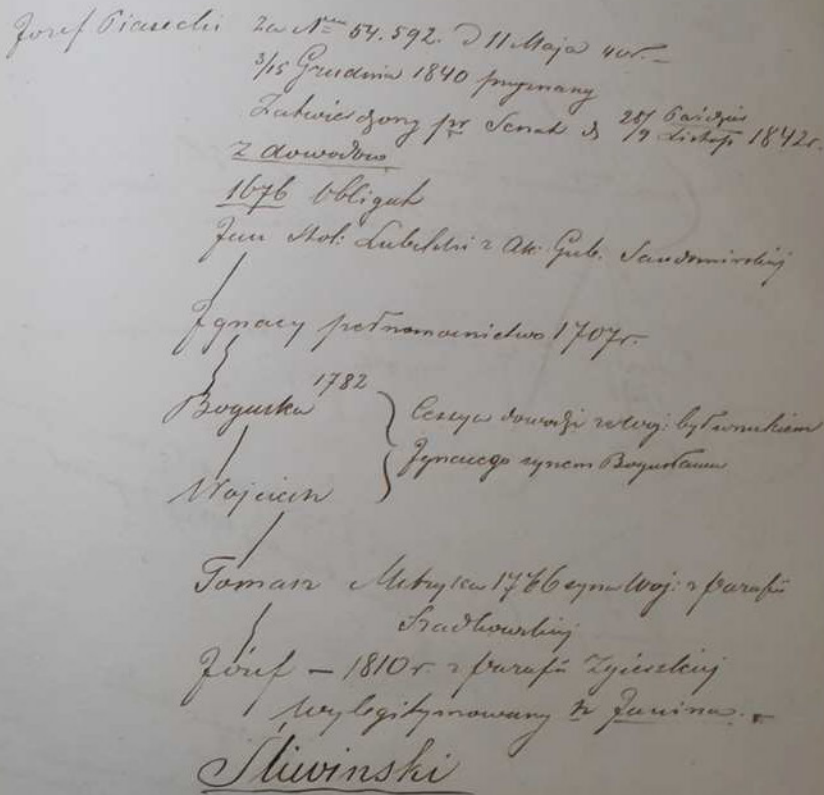 Jozef Piasecki za Nrem 54.592. D 11 Maja 40r. –
3/15 Grudnia 1840 przyznany
Zatwierdzony pr Senat d 28/ Paździe
/9 Listop 1842r.
z dowodów
1676 Obligat
Jan Stol: Lubelski z Ak: Gub. Sandomirskiej
Ignacy pełnomocnictwo 1707r.
Boguska 1782
Cessya dowodzi że Woj: był wnukiem
Ignacego synem Bogusława
Wojciech
Tomasz Metryka 1776 syna Woj: z parafii
Szadkowskiej
Józef – 1810 r. z parafii Zgierskiej
wylegitymowany h Janina. –
Śliwinski